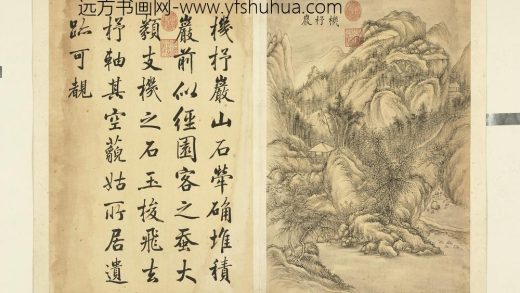 远方书画网-www.yfshuhua.com
機杼巖
機杼巖山石犖确堆積
巖前似經園客之蚕大
類支機之石玉梭飛去
杼軸其空藐姑所居遺
趾可